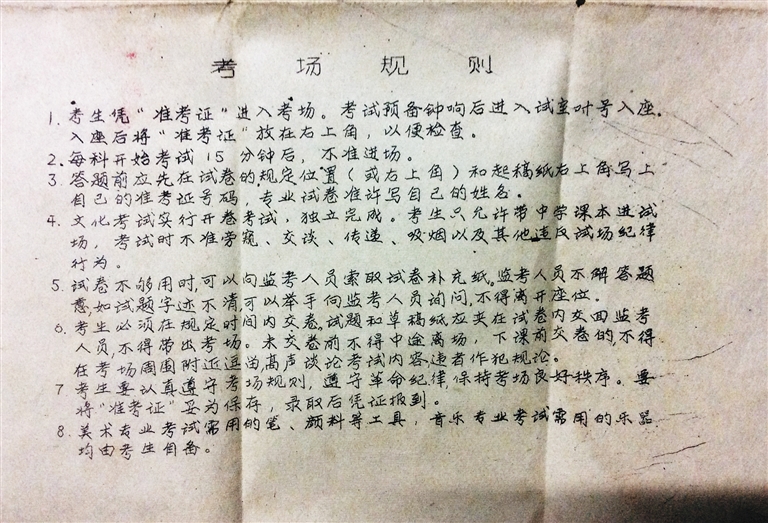 考场规则
1. 考生凭“准考证”进入考场。考试预备钟响后进入试室叶号入座.
入座后将“准考证”放在右上角，以便检查。
2. 每科开始考试15分钟后，不准进场。
3. 答题前应先在试卷的规定位置（或右上角）和起稿纸右上角写上
自己的准考证号码，专业试卷准许写自己的姓名。
4. 文化考试实行开卷考试，独立完成。考生只允许带中学课本进试
场，考试时不准旁窥、交谈、传递、吸烟以及其他违反试场纪律
行为。
5. 试卷不够用时，可以向监考人员索取试卷补充纸。监考人员不解答题
意，如试题字迹不清，可以举手向监考人员询问，不得离开座位。
6. 考生必须在规定时间内交卷。试题和草稿纸应夹在试卷内交回监考
人员，不得带出考场。未交卷前不得中途离场，下课前交卷的，不得
在考场周围附近逗曲，高声谈论考试内容，违者作犯规论。
7. 考生要认真遵守考场规则，遵守革命纪律，保持考场良好秩序。要
将“准考证”妥为保存，录取后凭证报到。
8. 美术专业考试需用的笔、颜料等工具，音乐专业考试需用的乐器
均由考生自备。